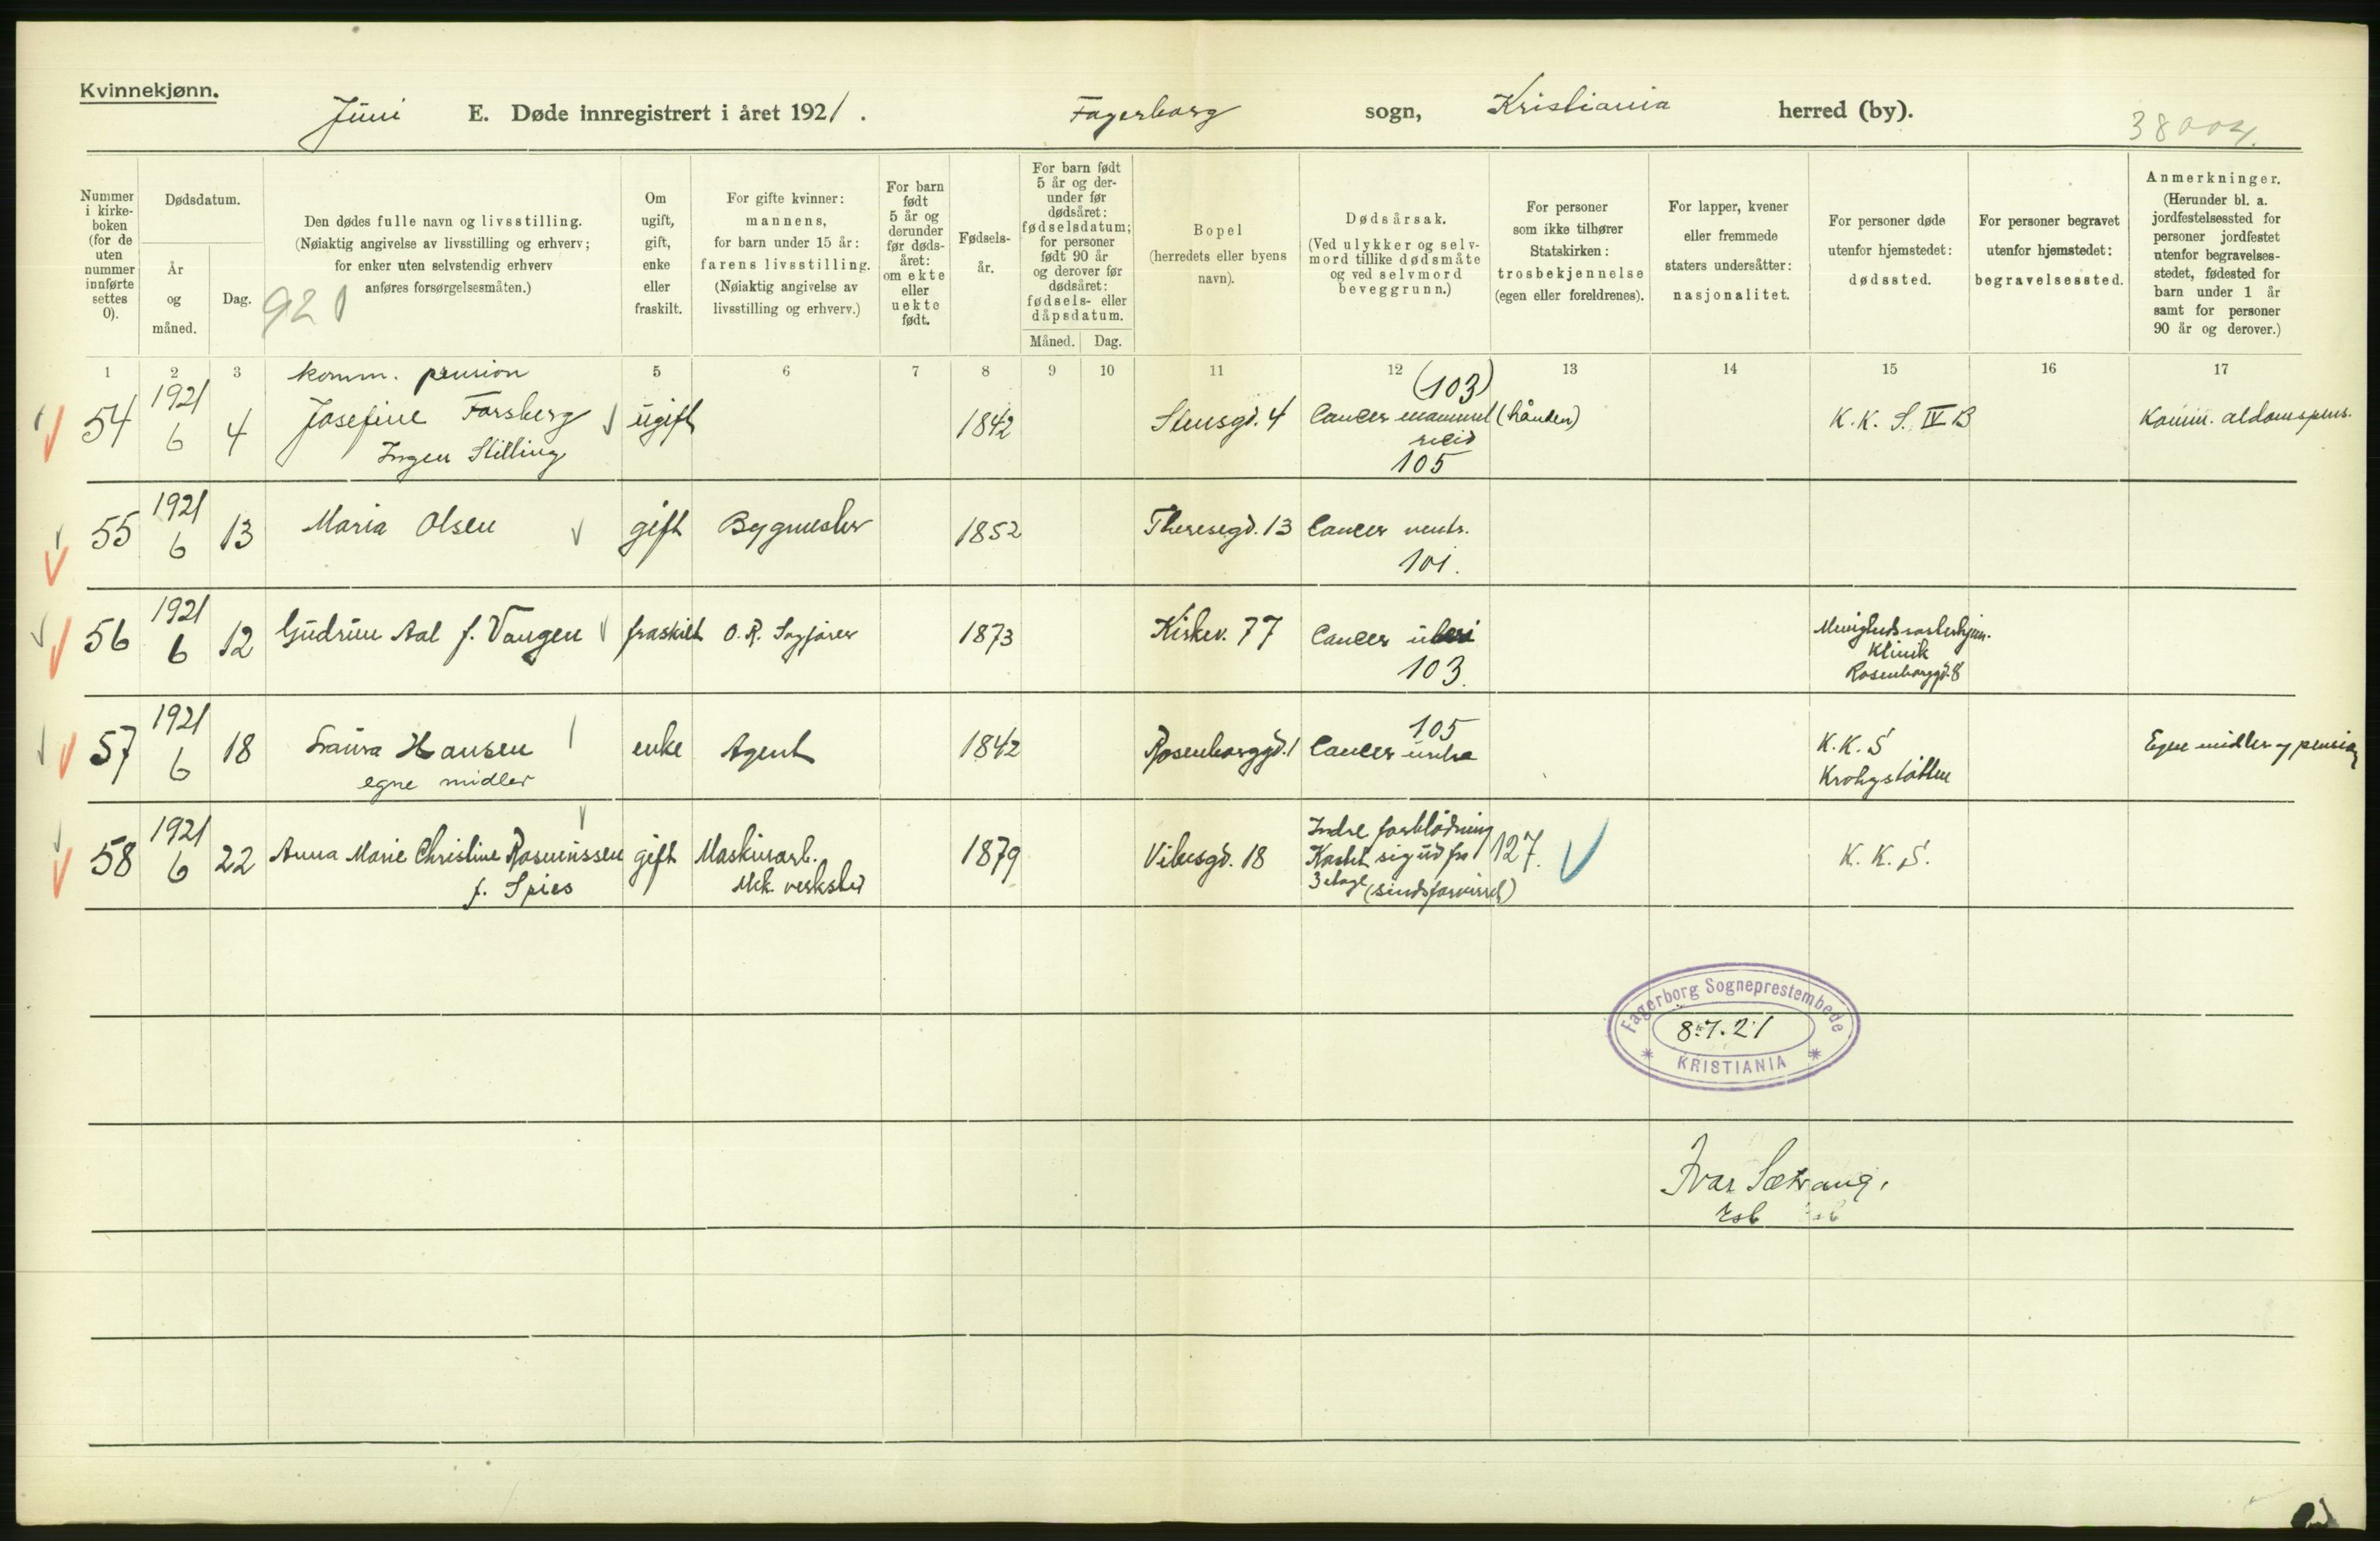 Kvinnekjønn.
Juni E. Døde innregistrert i året 1921. Fagerborg sogn, Kristiania herred (by). 38004.
Nummer i kirke-boken (for de uten nummer innførte settes 0).
Dødsdatum.
År og måned.
Dag.
Den dødes fulle navn og livsstilling.
(Nøiaktig angivelse av livsstilling og erhverv;
for enker uten selvstendig erhverv
anføres forsørgelsesmåten.)
Om ugift, gift, enke eller fraskilt.
For gifte kvinner:
mannens,
for barn under 15 år:
farens livsstilling.
(Nøiaktig angivelse av
livsstilling og erhverv.)
For barn født 5 år og derunder før døds-året: om ekte eller uekte født.
Fødsels-år.
For barn født 5 år og der-under før dødsåret: fødselsdatum; for personer født 90 år og derover før dødsåret: fødsels- eller dåpsdatum.
Måned. Dag.
Bopel
(herredets eller byens
navn).
Dødsårsak.
(Ved ulykker og selv-
mord tillike dødsmåte
og ved selvmord
beveggrunn.)
For personer
som ikke tilhører
Statskirken:
trosbekjennelse
(egen eller foreldrenes).
For lapper, kvener
eller fremmede
staters undersåtter:
nasjonalitet.
For personer døde
utenfor hjemstedet:
dødssted.
For personer begravet
utenfor hjemstedet:
begravelsessted.
Anmerkninger.
(Herunder bl. a.
jordfestelsessted for
personer jordfestet
utenfor begravelses-
stedet, fødested for
barn under 1 år
samt for personer
90 år og derover.)
921
1 2 3 5 6 7 8 9 10 11 12 13 14 15 16 17
komm. pension
54 1921 6 4 Josefine Forsberg ugift 1842 Stensgd. 4 (103) Cancer (hånden) K.K.S. IV B
Ingen Stilling 105
Komm. aldomspens.
55 1921 6 13 Maria Olsen gift Bygmester 1852 Theresegd. 13 Cancer ventr.
101.
56 1921 6 12 Gudrun Aal f. Vangen fraskilt O.R. Sagfører 1873 Kirkev. 77 Cancer uteri
103.
Klinik
Rosenborggd. 8
57 1921 6 18 Laura Hansen enke Agent 1842 Rosenborggd. 1 105 Cancer K.K.S
egne midler Krohgstøtten
Egne midler og pension
58 1921 6 22 Anna Marie Christine Rasmussen gift Maskinarb. 1879 Vibesgd. 18 Indre forblødning 127. K.K.S.
f. Spies Mek. verksted
Kastet sig ud fra
3 etage (sindsforvirret)
Fagerborg Sogneprestembede
8-7.21
KRISTIANIA
Ivar Sætrang.